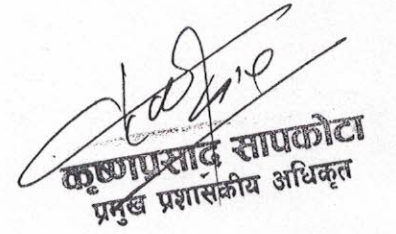 कृष्णप्रसाद सापकोटा
प्रमुख प्रशासकीय अधिकृत